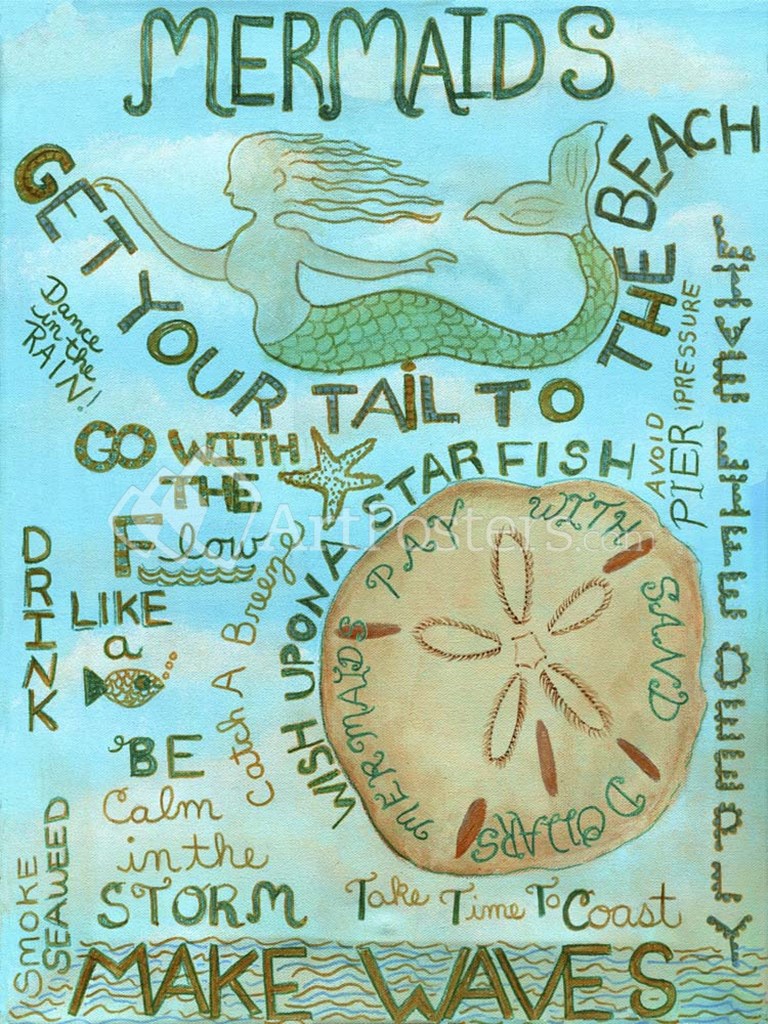 MERMAIDS
GET YOUR TAIL TO THE BEACH
Dance
in the
RAIN!
GO WITH
THE
Flow
WISH UPON A STARFISH
AVOID
PIER PRESSURE
DRINK
LIKE
a
Catch A Breeze
MERMAIDS PAY WITH SAND DOLLARS
BE
Calm
in the
STORM
SMOKE
SEAWEED
Take Time To Coast
MAKE WAVES
ArtPosters.com